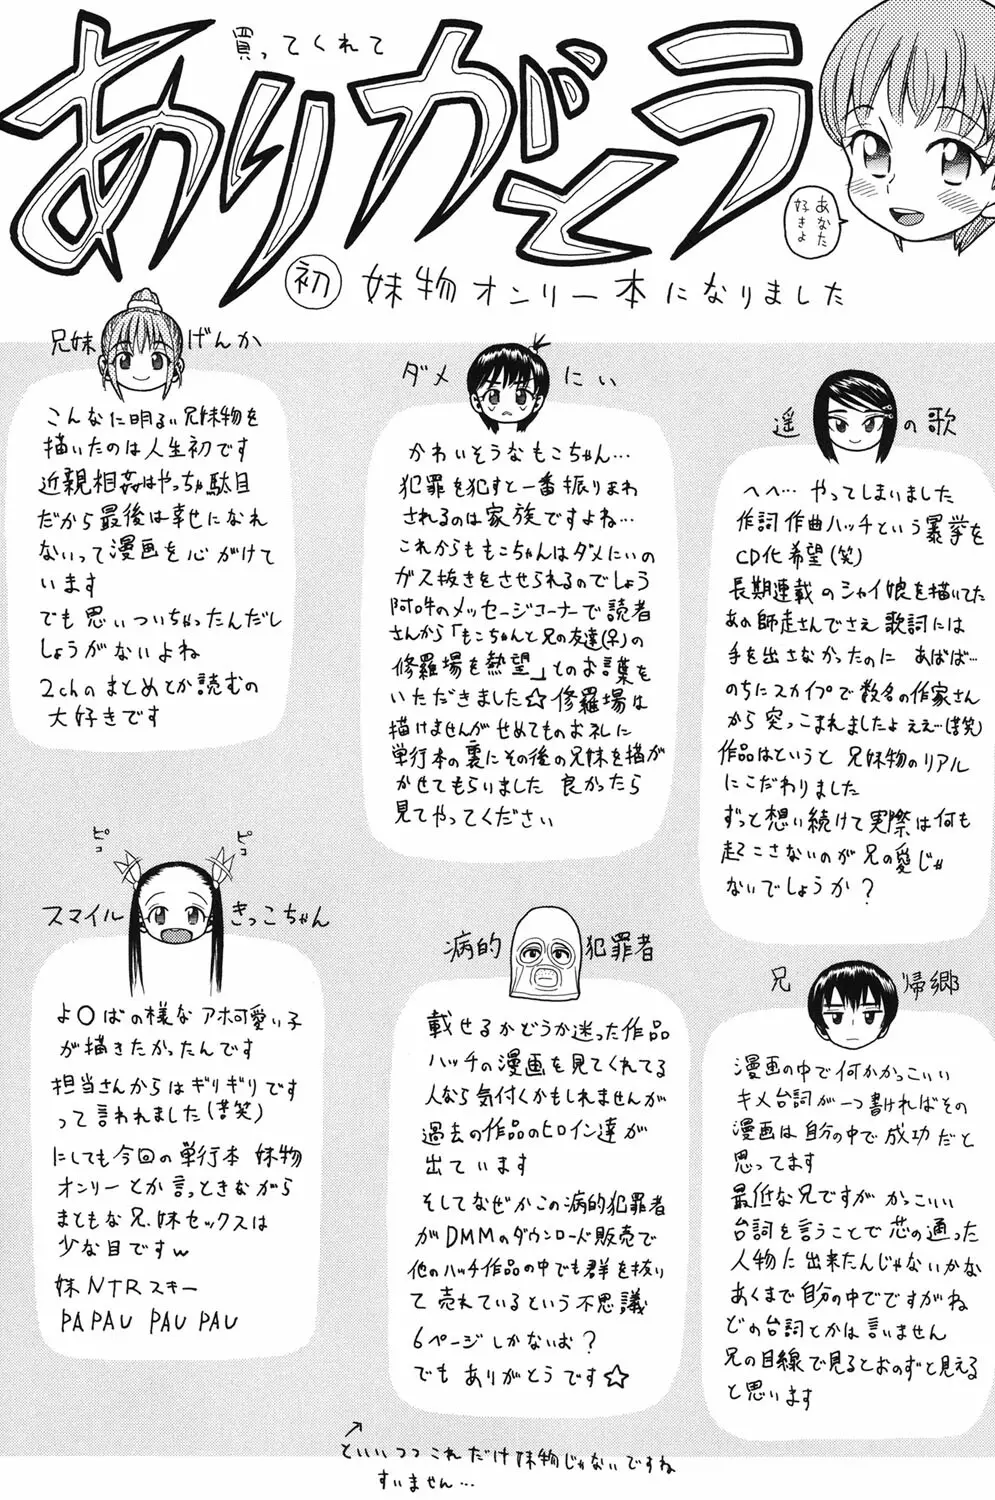 買ってくれて
ありがとう
あなた
好きよ
初 妹物オンリー本になりました
兄妹げんか
こんなに明るい兄妹物を
描いたのは人生初です
近親相姦はやっちゃ駄目
だから最後は幸せになれ
ないって漫画を心がけて
います
でも思いついちゃったんだし
しょうがないよね
2chのまとめとか読むの
大好きです
ダメにい
かわいそうなもこちゃん…
犯罪を犯すと一番振りまわ
されるのは家族ですよね…
これからももこちゃんはダメにいの
ガス抜きをさせられるのでしょう
阿吽のメッセージコーナーで読者
さんから「もこちゃんと兄の友達(♀)の
修羅場を熱望」とのお言葉を
いただきました☆修羅場は
描けませんがせめてものお礼に
単行本の裏にその後の兄妹を描が
かせてもらいました 良かったら
見てやってください
遥の歌
へへ…やってしまいました
作詞作曲ハッチという暴挙を
CD化希望(笑)
長期連載のシャイ娘を描いてた
あの師走さんでさえ歌詞には
手を出さなかったのに あばば…
のちにスカイプで数名の作家さん
から突っこまれましたよ ええ…(苦笑)
作品はというと 兄妹物のリアル
にこだわりました
ずっと想い続けて実際は何も
起こさないのが兄の愛じゃ
ないでしょうか?
ピコ
ピコ
スマイルきっこちゃん
よ○ばの様なアホ可愛い子
が描きたかったんです
担当さんからはギリギリです
って言われました(苦笑)
にしても今回の単行本 妹物
オンリーとか言っときながら
まともな兄妹セックスは
少な目ですw
妹NTRスキー
PAPAU PAU PAU
病的犯罪者
載せるかどうか迷った作品
ハッチの漫画を見てくれてる
人なら気付くかもしれませんが
過去の作品のヒロイン達が
出ています
そしてなぜかこの病的犯罪者
がDMMのダウンロード販売で
他のハッチ作品の中でも群を抜い
て売れているという不思議
6ページしかないお?
でもありがとうです☆
といいつつこれだけ妹物じゃないですね
すいません…
兄帰郷
漫画の中で何かかっこいい
キメ台詞が一つ書ければその
漫画は自分の中で成功だと
思ってます
最低な兄ですがかっこいい
台詞を言うことで芯の通った
人物に出来たんじゃないかな
あくまで自分の中でですがね
どの台詞とかは言いません
兄の目線で見るとおのずと見える
と思います